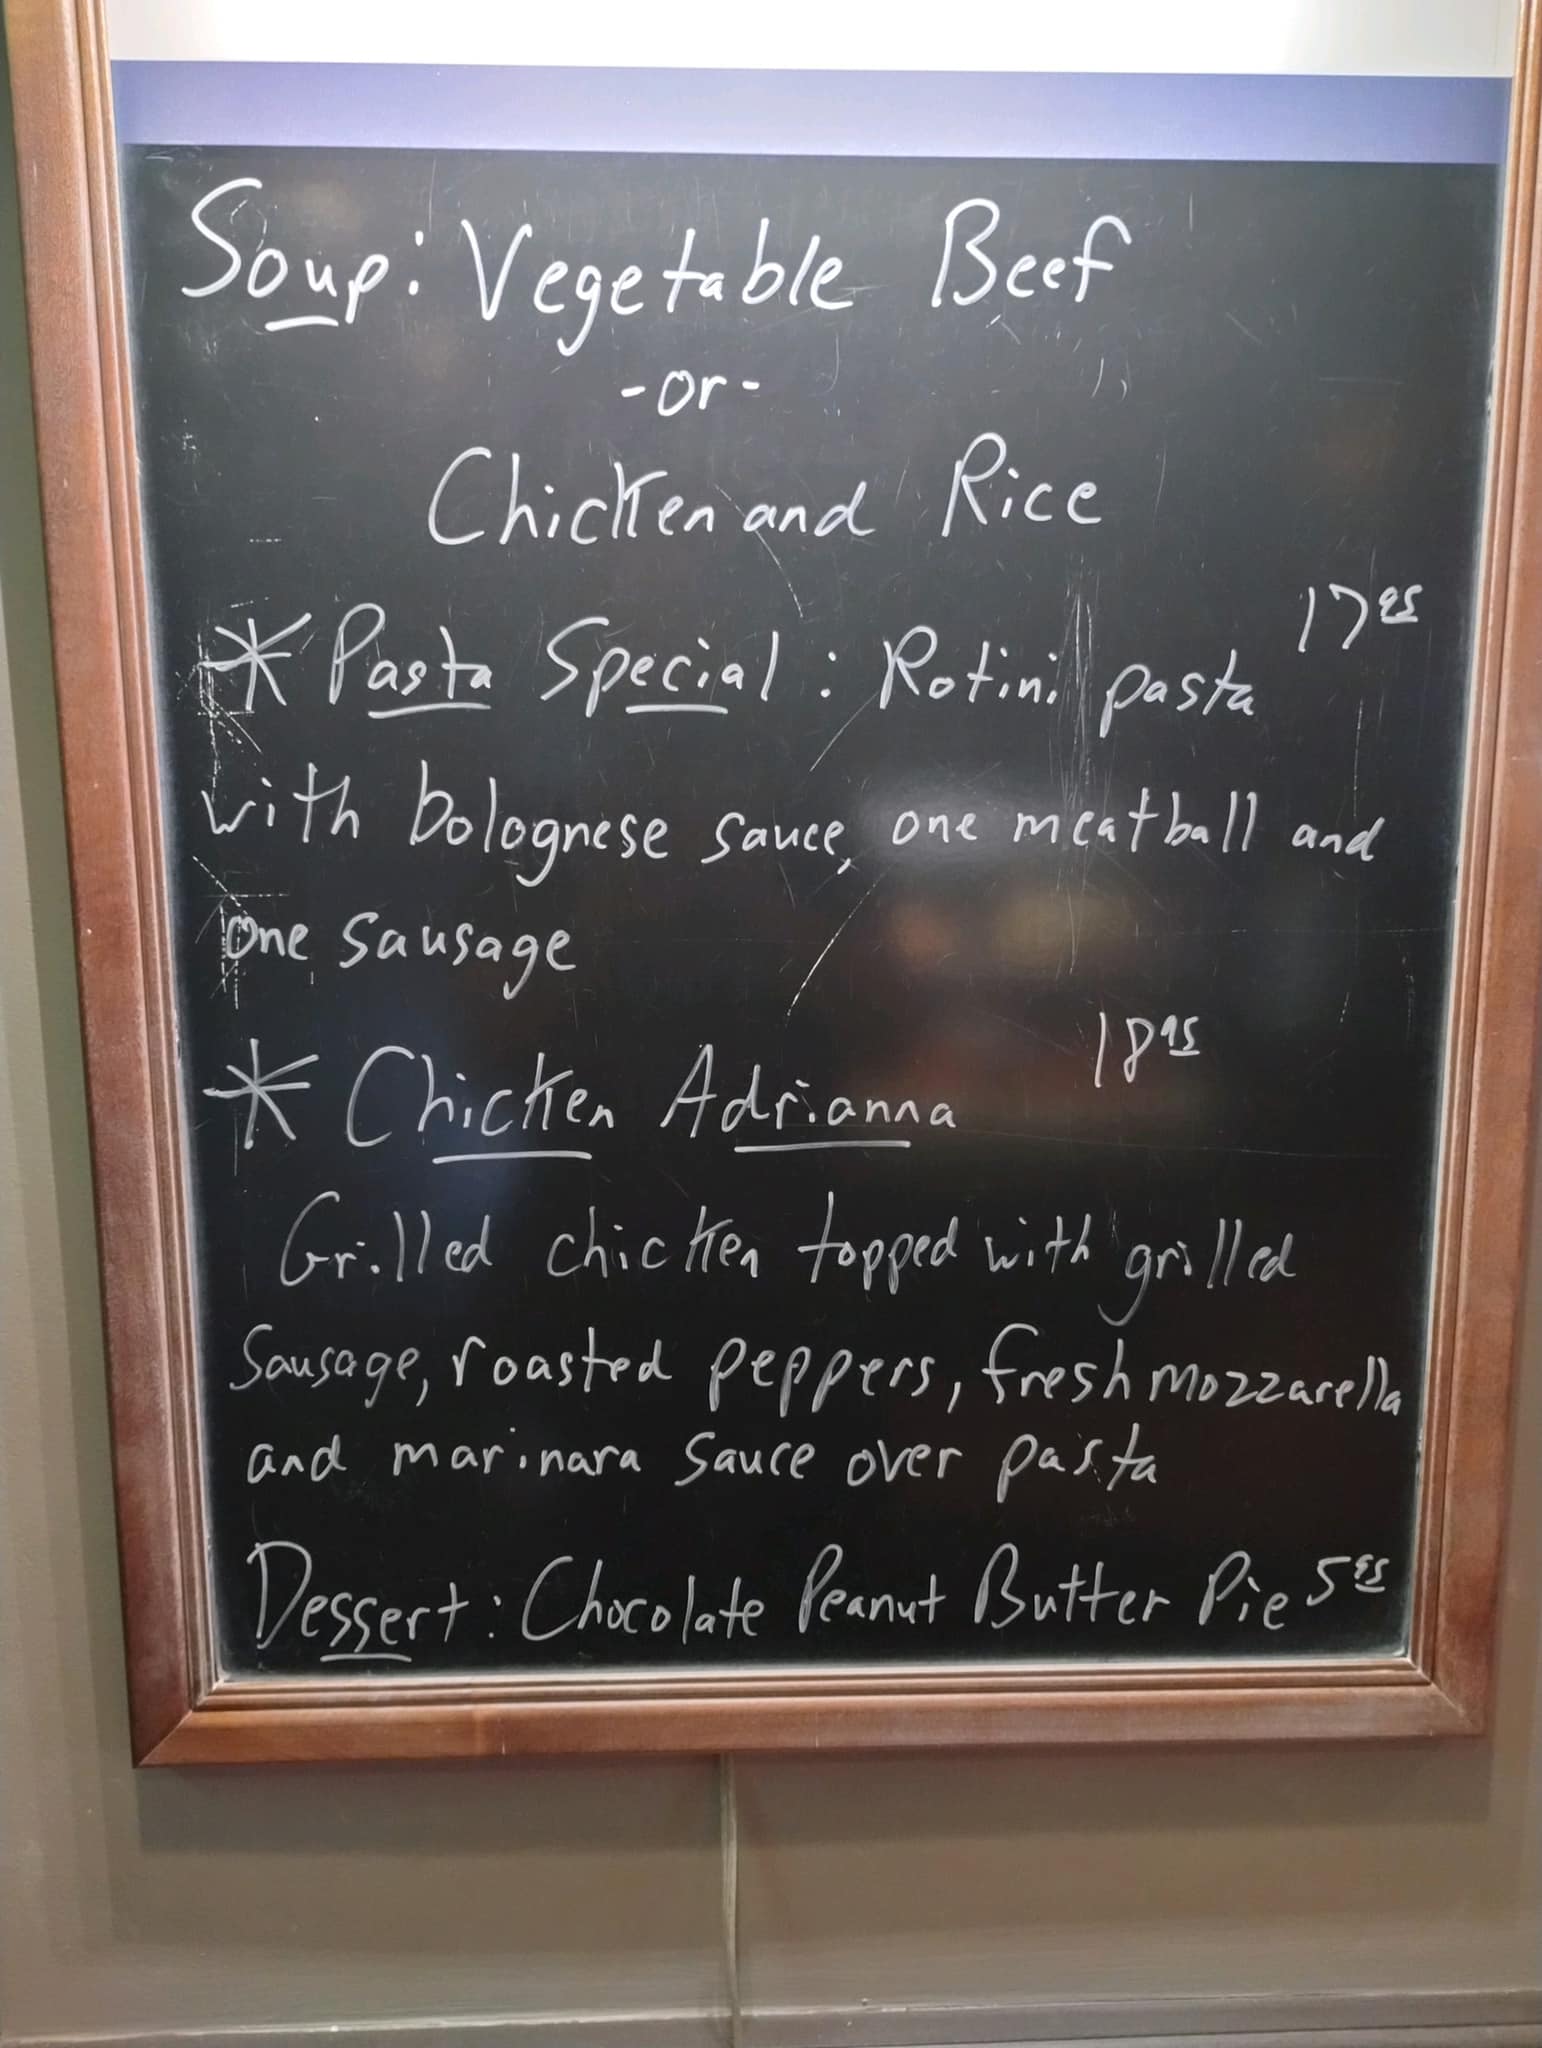 Soup: Vegetable Beef
-or-
Chicken and Rice
* Pasta Special: Rotini pasta 17 95
with bolognese sauce, one meatball and
one sausage
* Chicken Adrianna 18 95
Grilled chicken topped with grilled
Sausage, roasted peppers, fresh mozzarella
and marinara sauce over pasta
Dessert: Chocolate Peanut Butter Pie 5 95